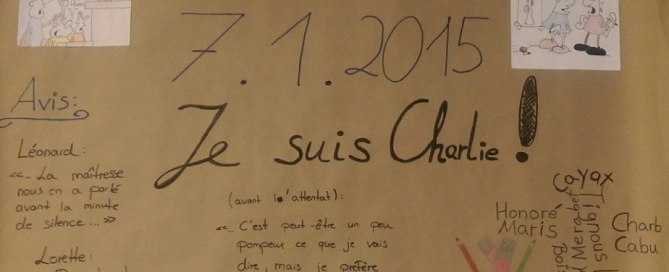 7.1.2015
Je suis Charlie !
Avis:
Léonard:
«... La maîtresse
nous en a parlé
avant la minute
de silence... »
Lorette:
(avant l'attentat):
«... C'est peut-être un peu
pompeux ce que je vais
dire, mais je préfère
Cayax
Honoré
Maris
Merabet
Tignous
Charb
Cabu